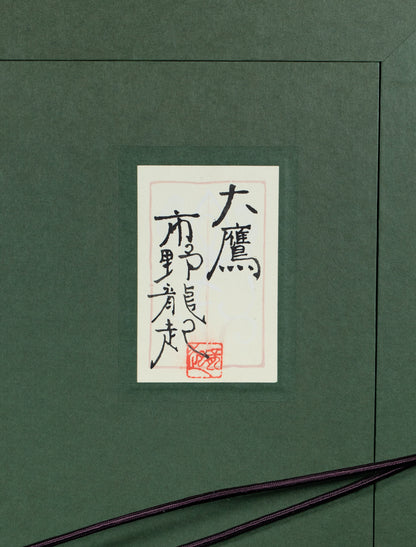 大鷹
市野龍起